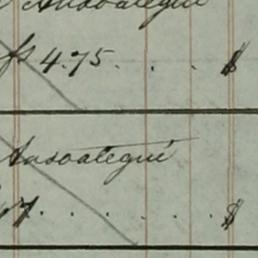 Ansoategui
fs 4.75 . . . $
Ansoategui
7 . . . . . $